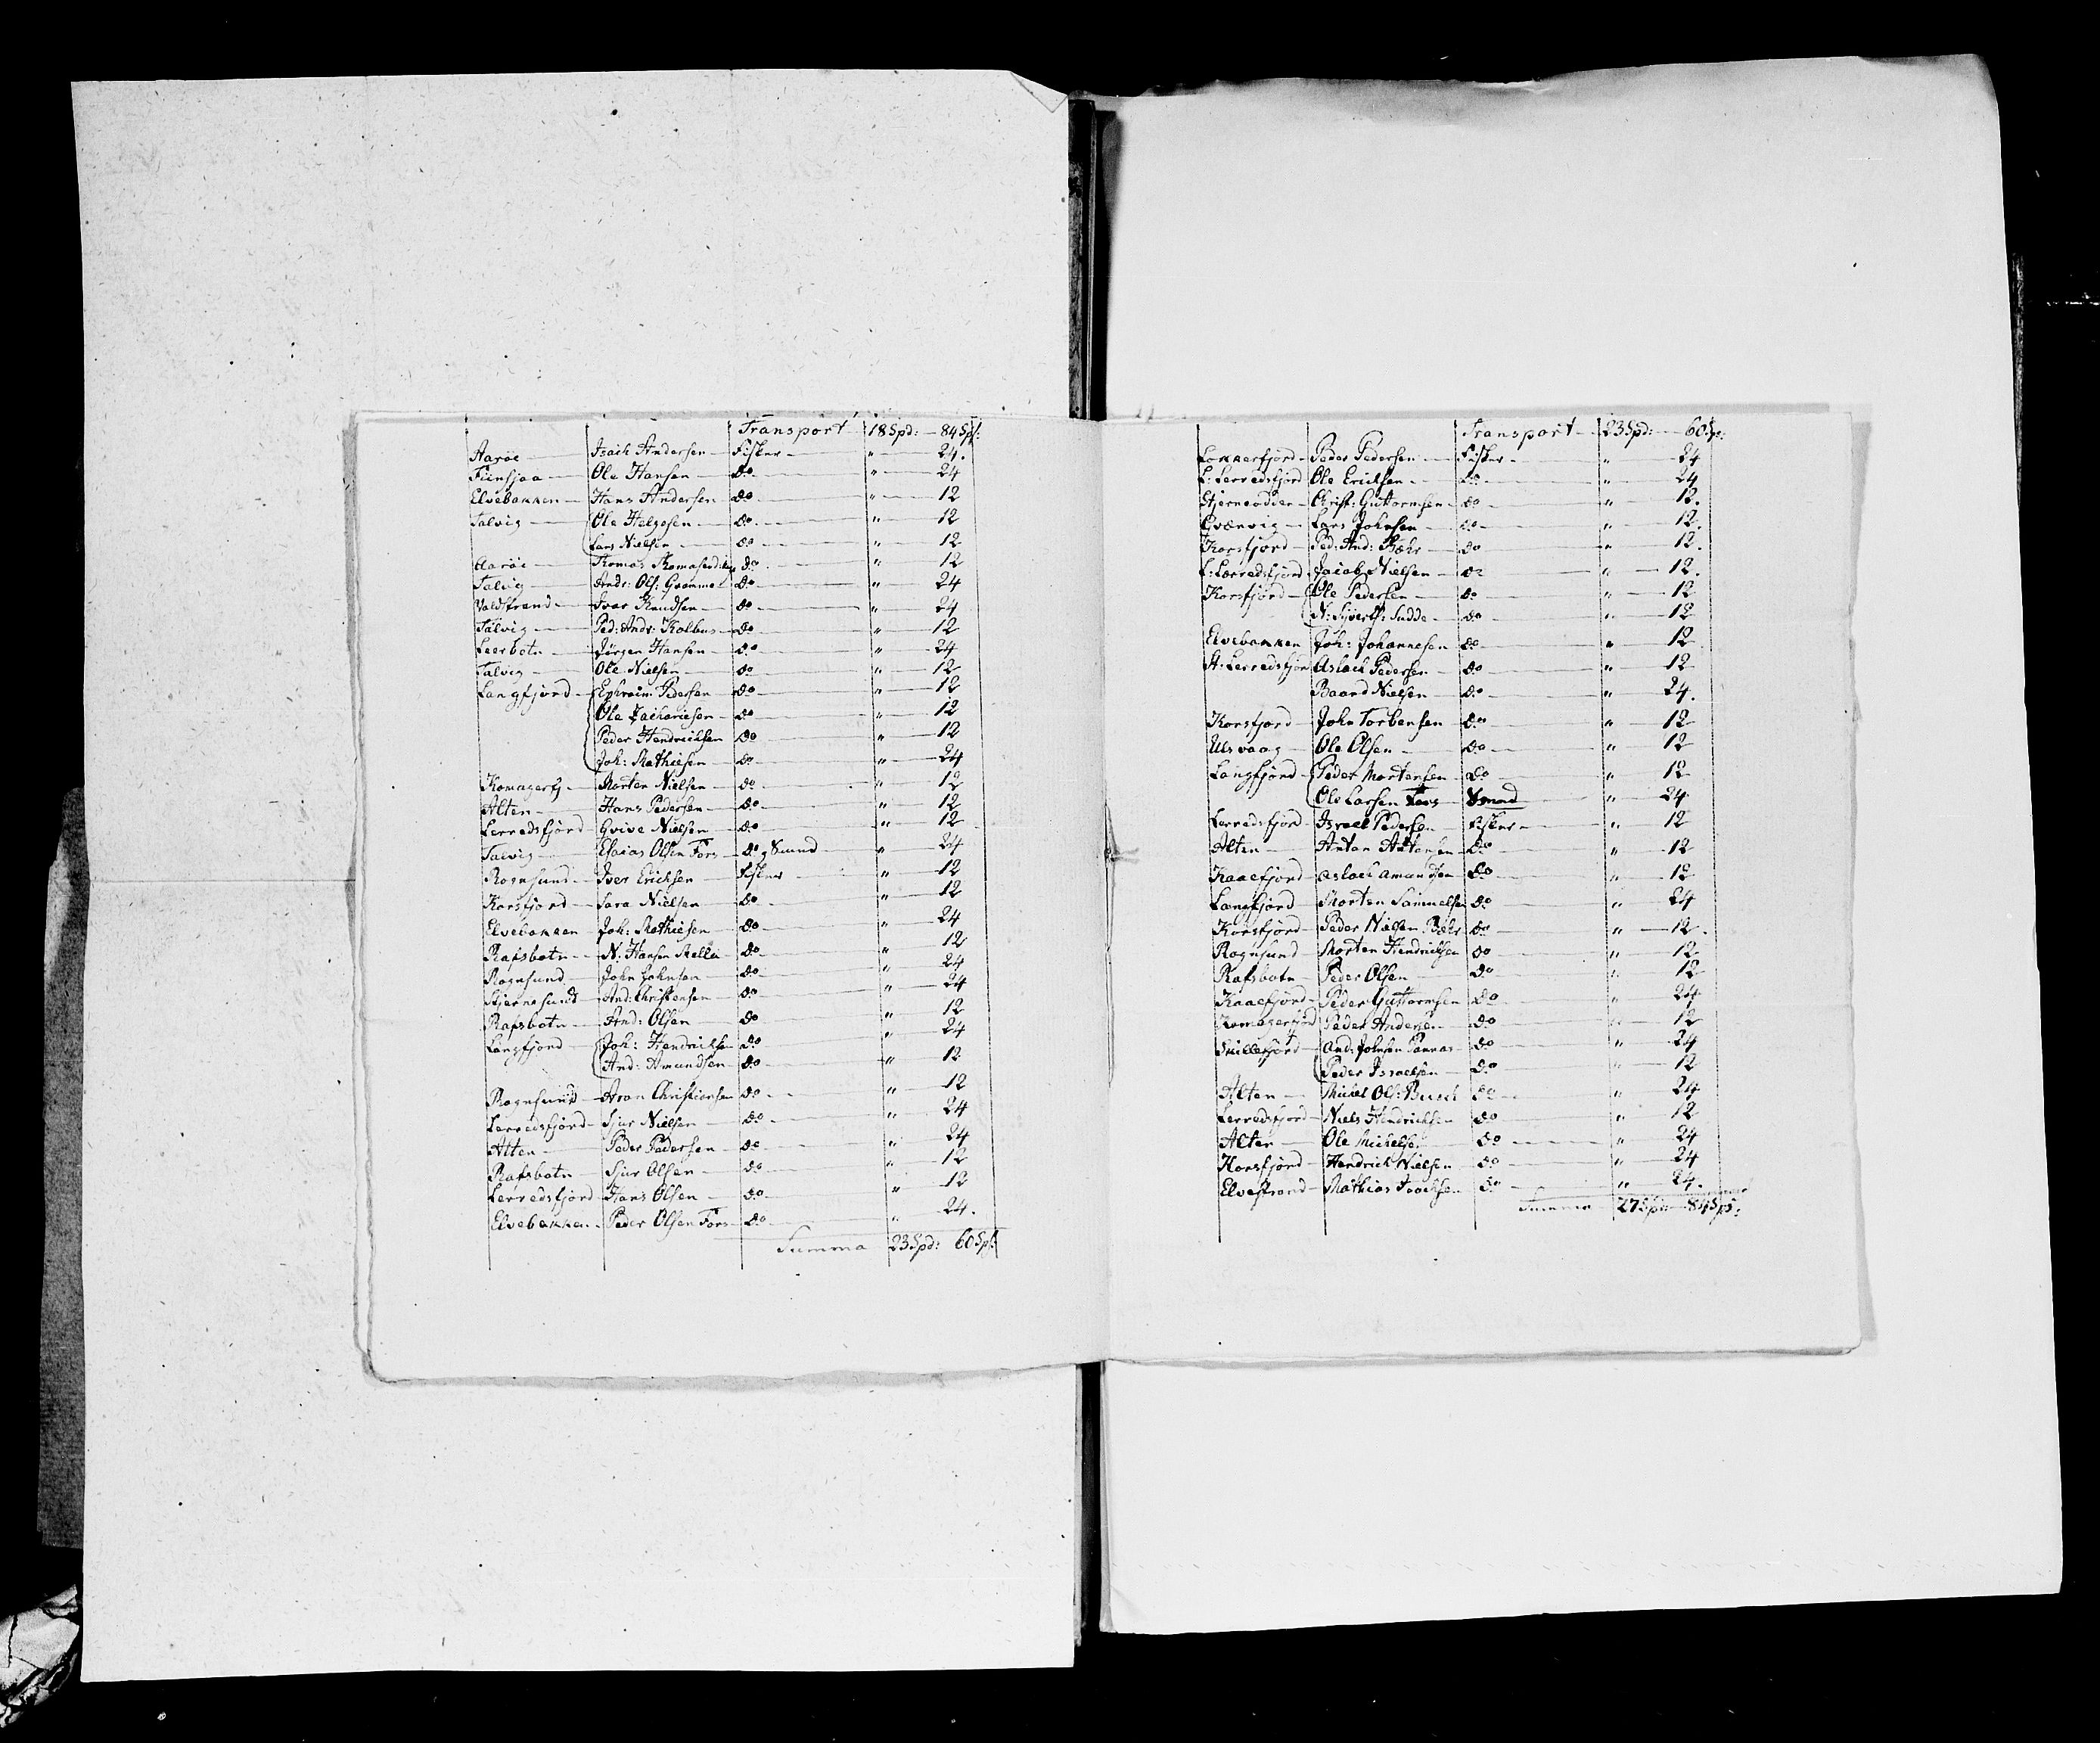 Transport 18 Spd: 84 Sp:
Aaröe Isach Andersen Fisker " 24.
Fiinsjaa Ole Hansen do " 24
Elvebakken Hans Andersen do " 12
Talvig Ole Helgesen do " 12
Lars Nielsen do " 12
Aaröe Thomas do " 12
Talvig Andr: Ols: Grammel do " 24
Ivar Knudsen do " 24
Talvig Ped: Andr: Kolbus do " 12
Leerbotn Jörgen Hansen do " 24
Talvig Ole Nielsen do " 12
Langfjord Ephraim Pedersen do " 12
Ole Zachariesen do " 12
Peder Hendrichsen do " 12
Joh: Mathiesen do " 24
Komagerfj Morten Nielsen do " 12
Alten Hans Pedersen do " 12
Lerredsfjörd Gvive Nielsen do " 12
Talvig Esaias Olsen Fors do g Smed " 24
Rognsund Iver Erichsen Fisker " 12
Korsfjord Sara Nielsen do " 12
Elvebakken Joh: Mathiesen do " 24
Rafsbotn N: Hansen do " 12
Rognsund John Johnsen do " 24
Stjernesund And: Christensen do " 24
Rafsbotn And: Olsen do " 12
Langfjord Joh: Hendrichsen do " 24
And: Amundsen do " 12
Rognsund Aron Christiansen do " 12
Lerredsfjord Sjur Nielsen do " 24
Alten Peder Pedersen do " 24
Rafsbotn Sjur Olsen do " 12
Lerredsfjord Hans Olsen do " 12
Elvebakken Peder Olsen Fors do " 24.
Summa 23 Spd: 60 Sp:
Transport 23 Spd: 60 Sp:
Lokkerfjord Peder Pedersen Fisker " 24
L: Lerredsfjord Ole Erichsen do " 24
Christ: Guttormsen do " 12.
Qvænvig Lars Johnsen do " 12.
Korsfjord Ped: And: Bæhr do " 12.
L: Lerredsfjord Jacob Nielsen do " 12.
Korsfjord Ole Pedersen do " 12
N: Syverts: Sudde do " 12
Elvebakken Joh: Johannesen do " 12
St: Lerredsfjor Aslach Pedersen do " 12
Baard Nielsen do " 24.
Korsfjord John Torbensen do " 12
Ulsvaag Ole Olsen do " 12
Langfjord Peder Mortensen do " 12
Ole Larsen Fors Smed " 24
Lerredsfjord Israel Pedersen Fisker " 12
Alten Anton Antonsen do " 12
Kaaefjord Aslach Amundsen do " 12
Langfjord Morten Samuelsen do " 24
Korsfjord Peder Nielsen Bæhr do " 12.
Rognsund Morten Hendrichsen do " 12
Rafsbotn Peder Olsen do " 12
Kaaefjord Peder Guttormsen do " 24
Komagerfjord Peder Andersen do " 12
Skillefjord And: Johnsen Pannas do " 24
Peder Israelsen do " 12
Alten Michel Ols: Busch do " 24
Lerredsfjord Niels Hendrichsen do " 12
Alten Ole Michelsen do " 24
Korsfjord Hendrich Nielsen do " 24
Elvestrand Mathias Isachsen do " 24.
Summa 27 Sp: 84 Sp: